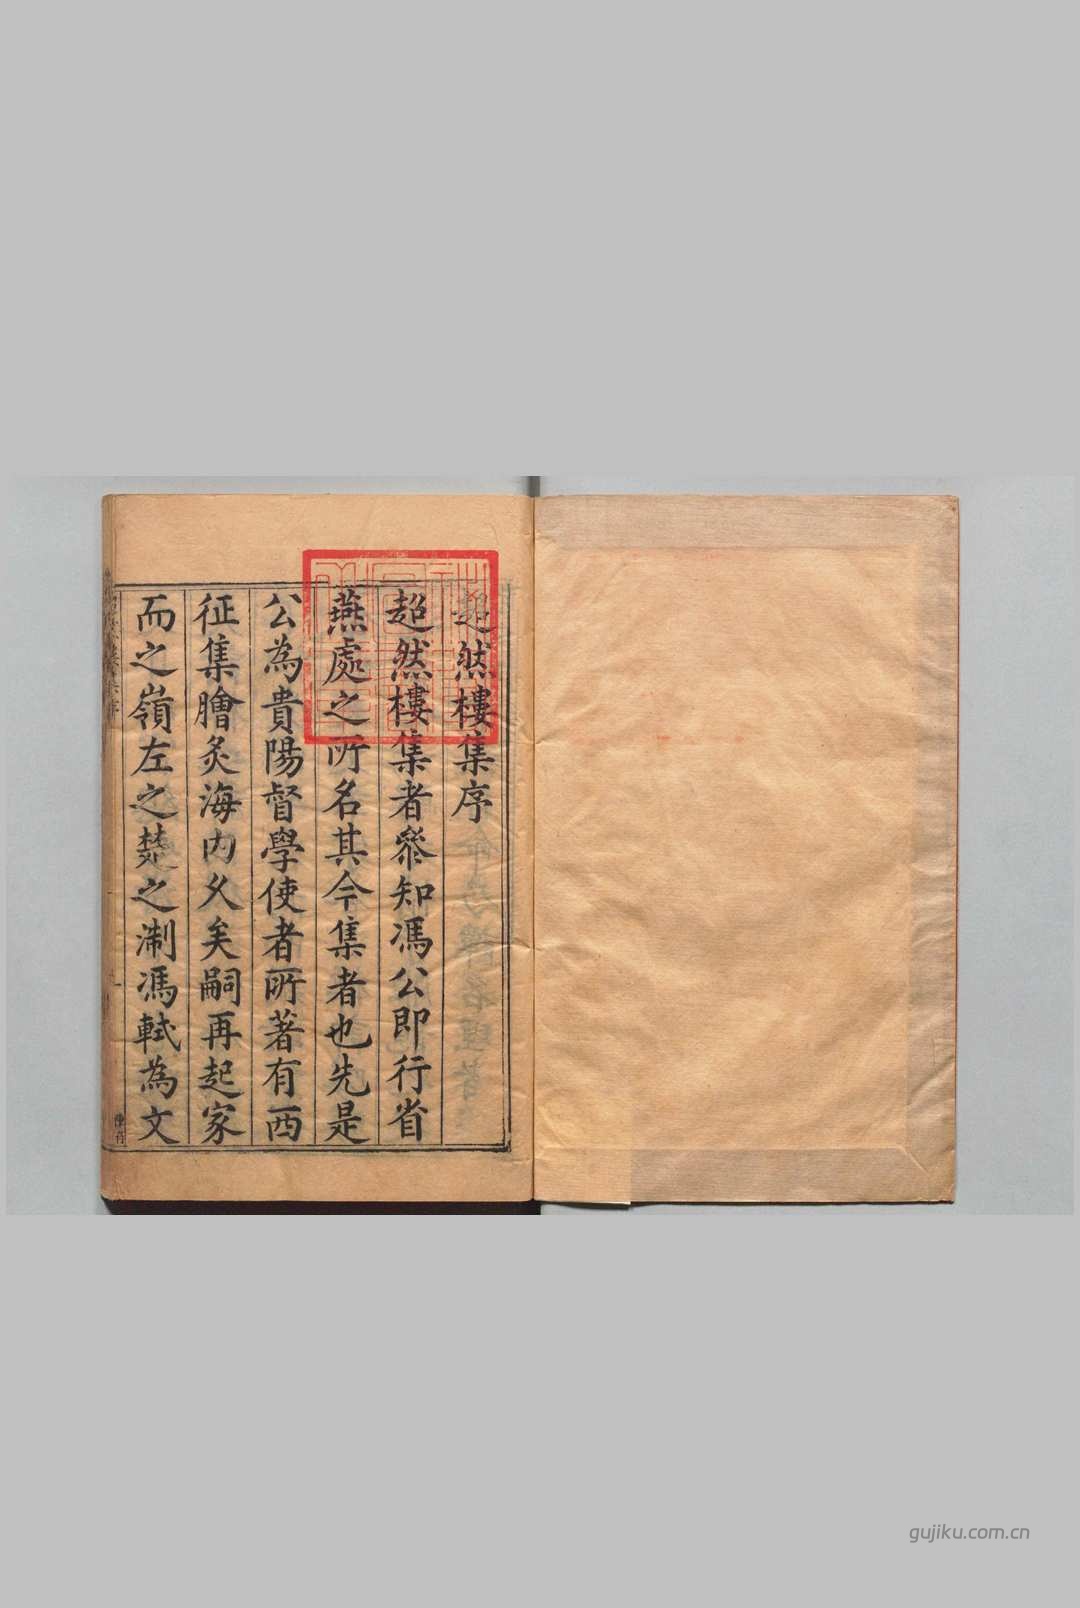 超然樓集序
超然樓集者叅知馮公即行省
燕處之所名其今集者也先是
公為貴陽督學使者所著有西
征集膾炙海内乆矣嗣再起家
而之嶺左之楚之淛馮軾為文
gujiku.com.cn